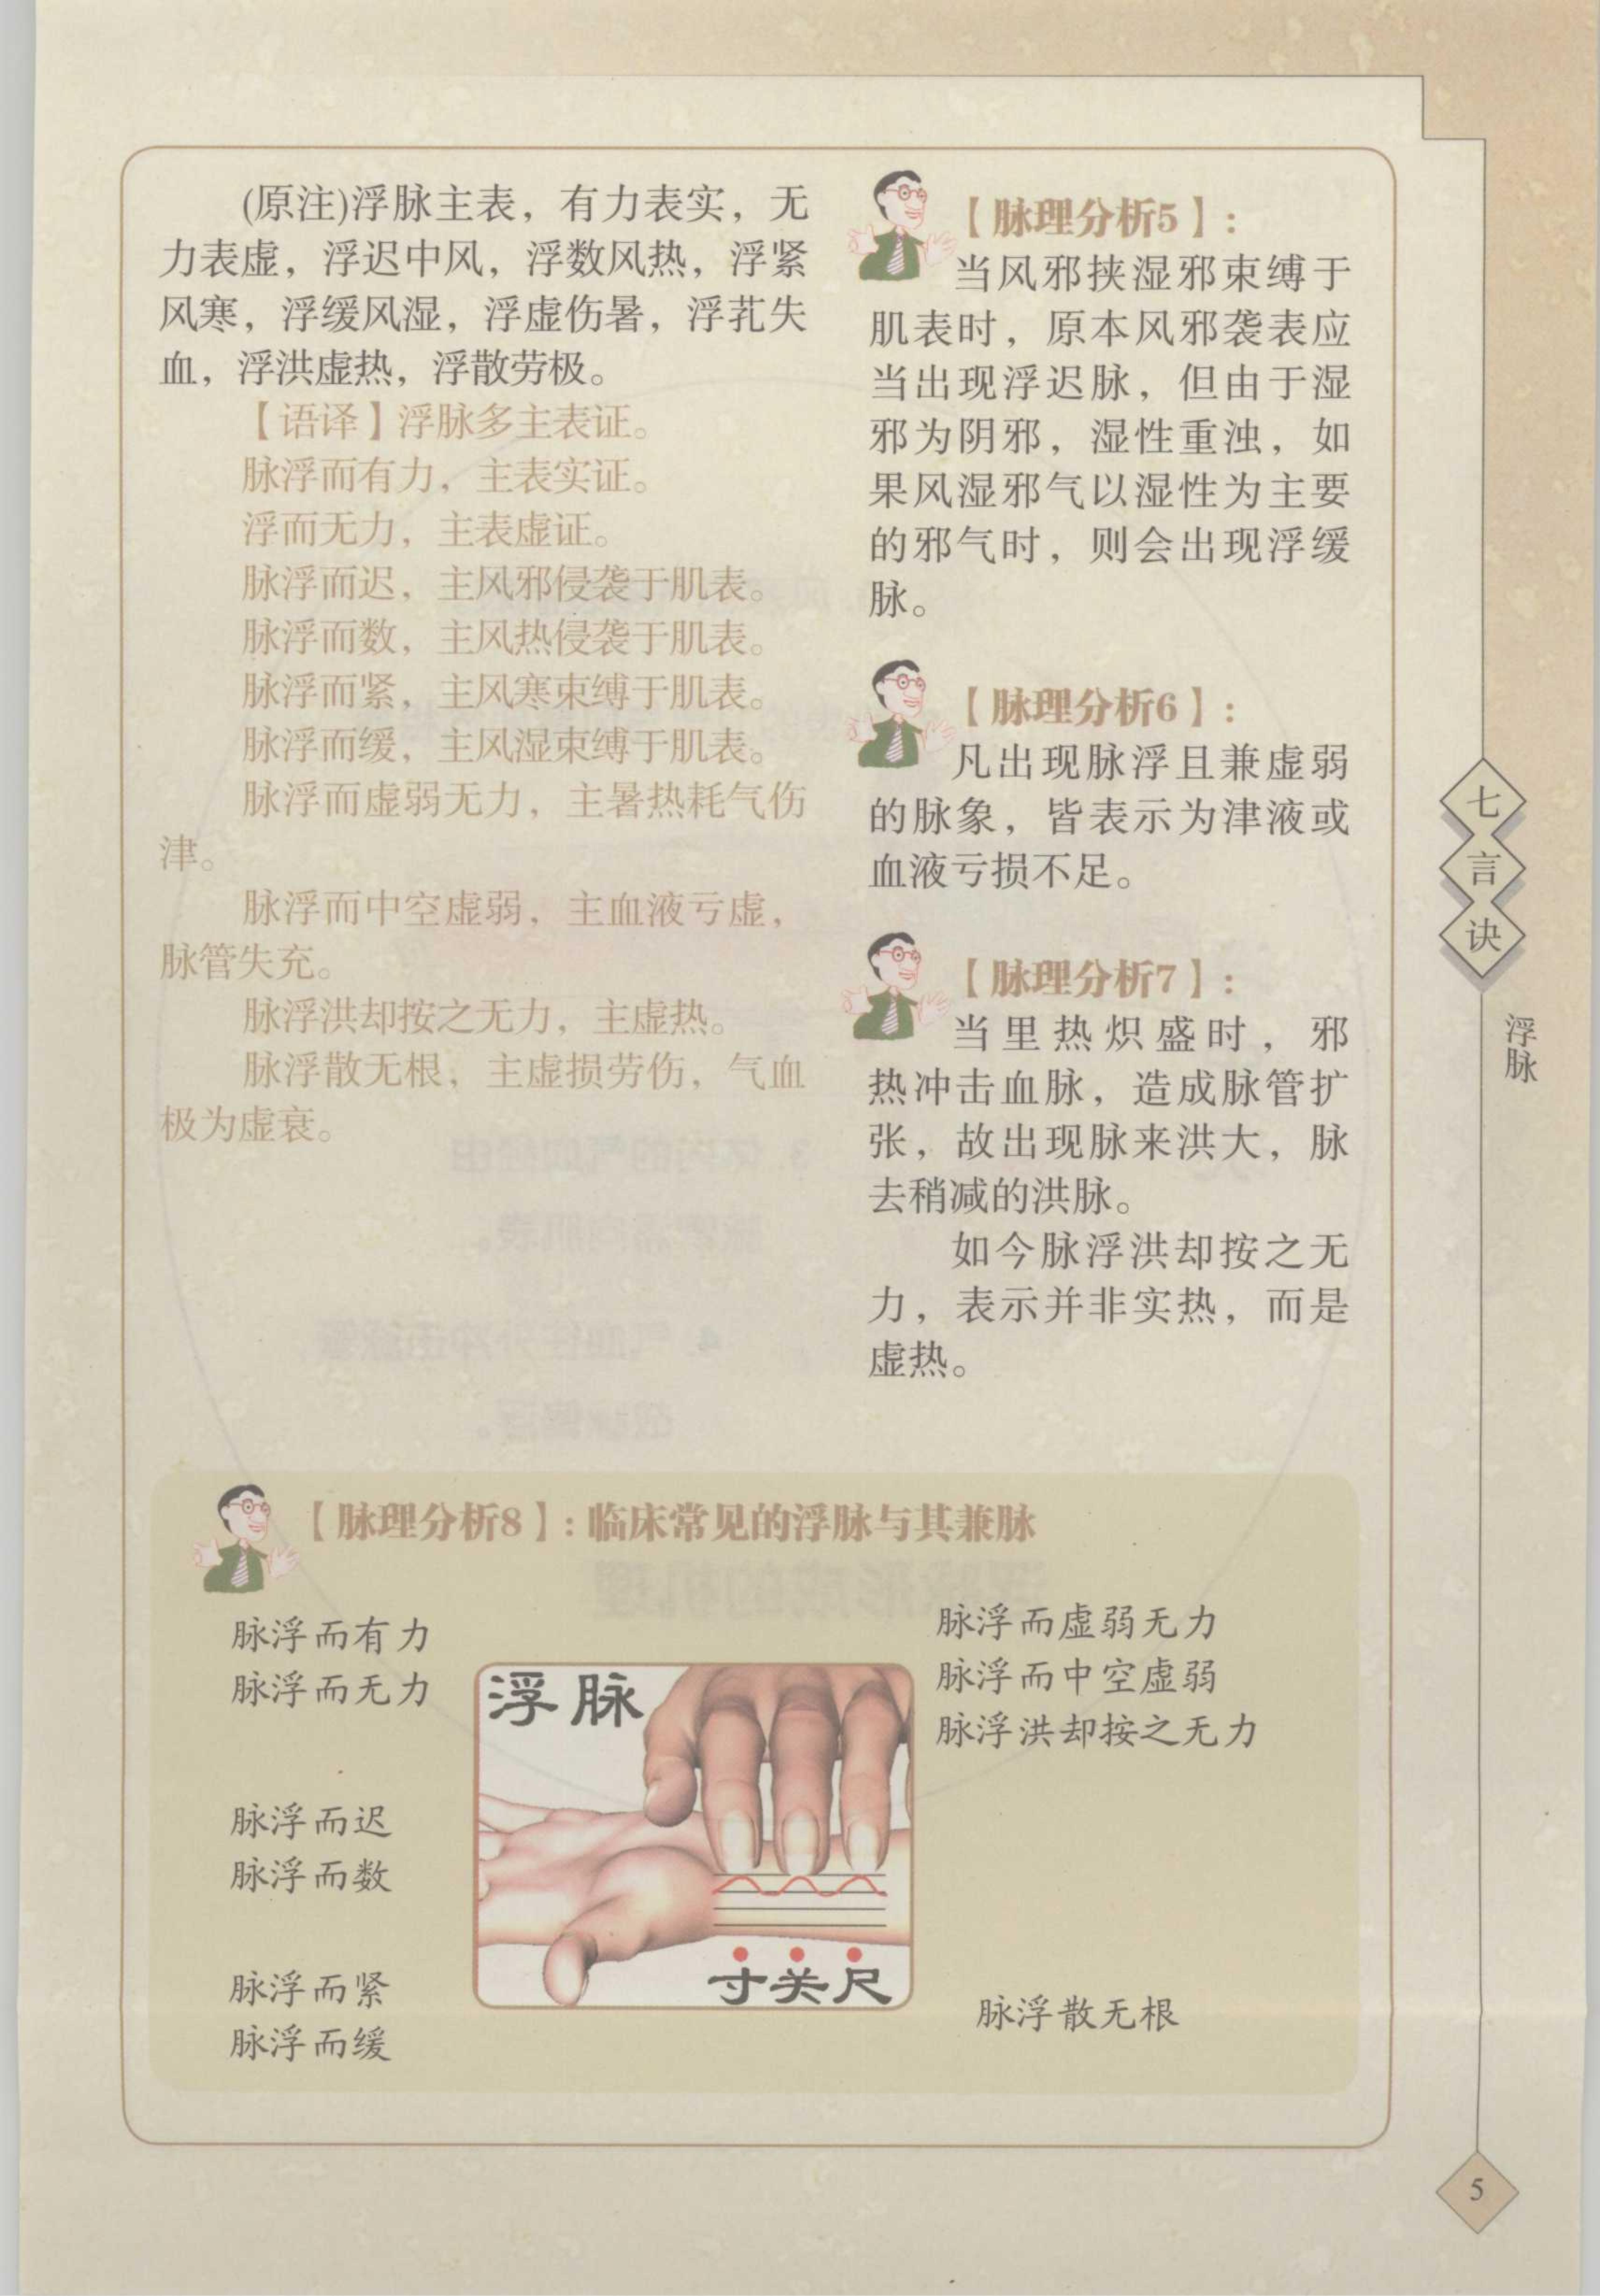 (原注)浮脉主表，有力表实，无
力表虚，浮迟中风，浮数风热，浮紧
风寒，浮缓风湿，浮虚伤暑，浮芤失
血，浮洪虚热，浮散劳极。
【语译】浮脉多主表证。
脉浮而有力，主表实证。
浮而无力，主表虚证。
脉浮而迟，主风邪侵袭于肌表。
脉浮而数，主风热侵袭于肌表。
脉浮而紧，主风寒束缚于肌表。
脉浮而缓，主风湿束缚于肌表。
脉浮而虚弱无力，主暑热耗气伤
津。
脉浮而中空虚弱，主血液亏虚，
脉管失充。
脉浮洪却按之无力，主虚热。
脉浮散无根，主虚损劳伤，气血
极为虚衰。
【脉理分析5】：
当风邪挟湿邪束缚于
肌表时，原本风邪袭表应
当出现浮迟脉，但由于湿
邪为阴邪，湿性重浊，如
果风湿邪气以湿性为主要
的邪气时，则会出现浮缓
脉。
【脉理分析6】：
凡出现脉浮且兼虚弱
的脉象，皆表示为津液或
血液亏损不足。
【脉理分析7】：
当里热炽盛时，邪
热冲击血脉，造成脉管扩
张，故出现脉来洪大，脉
去稍减的洪脉。
如今脉浮洪却按之无
力，表示并非实热，而是
虚热。
【脉理分析8】：临床常见的浮脉与其兼脉
脉浮而有力
脉浮而无力
脉浮而迟
脉浮而数
脉浮而紧
脉浮而缓
浮脉
寸关尺
脉浮而虚弱无力
脉浮而中空虚弱
脉浮洪却按之无力
脉浮散无根
七言诀
浮脉
5